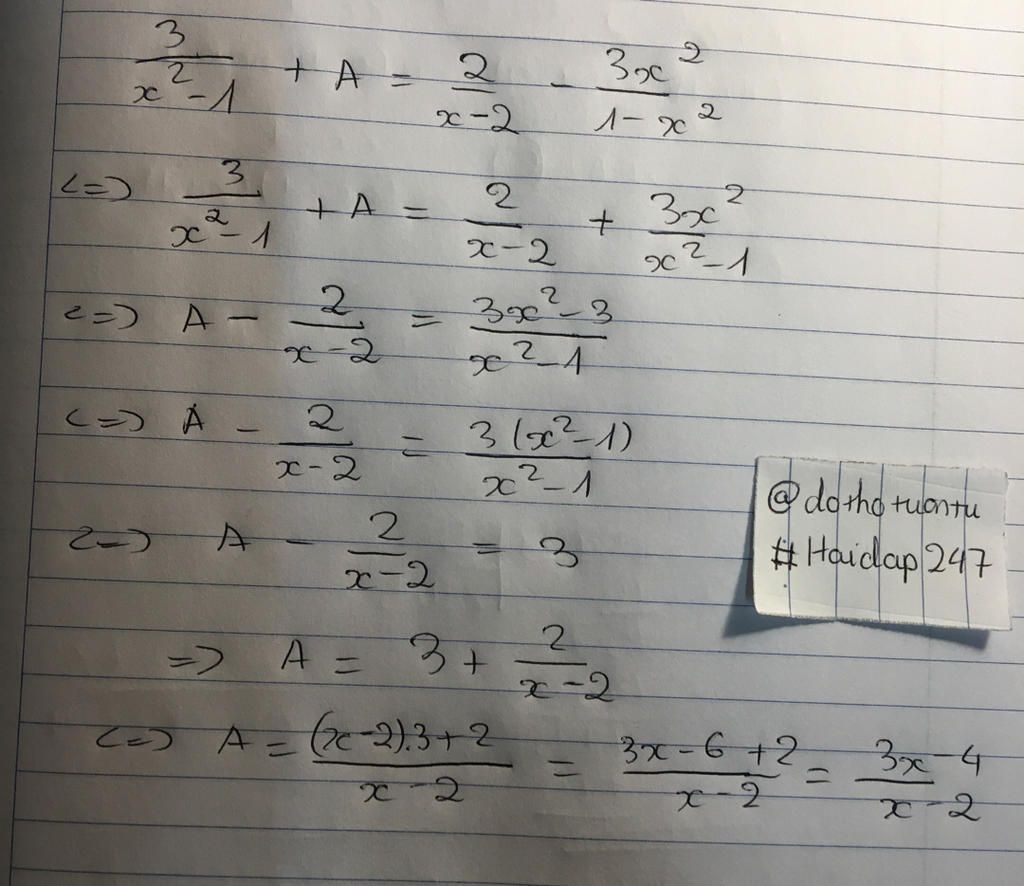 3/(x²-1) + A = 2/(x-2) - 3x²/(1-x²)
<=> 3/(x²-1) + A = 2/(x-2) + 3x²/(x²-1)
<=> A - 2/(x-2) = (3x²-3)/(x²-1)
<=> A - 2/(x-2) = 3(x²-1)/(x²-1)
<=> A - 2/(x-2) = 3
=> A = 3 + 2/(x-2)
<=> A = ((x-2).3+2)/(x-2) = (3x-6+2)/(x-2) = (3x-4)/(x-2)
@dothotuontu
#Hoidap247